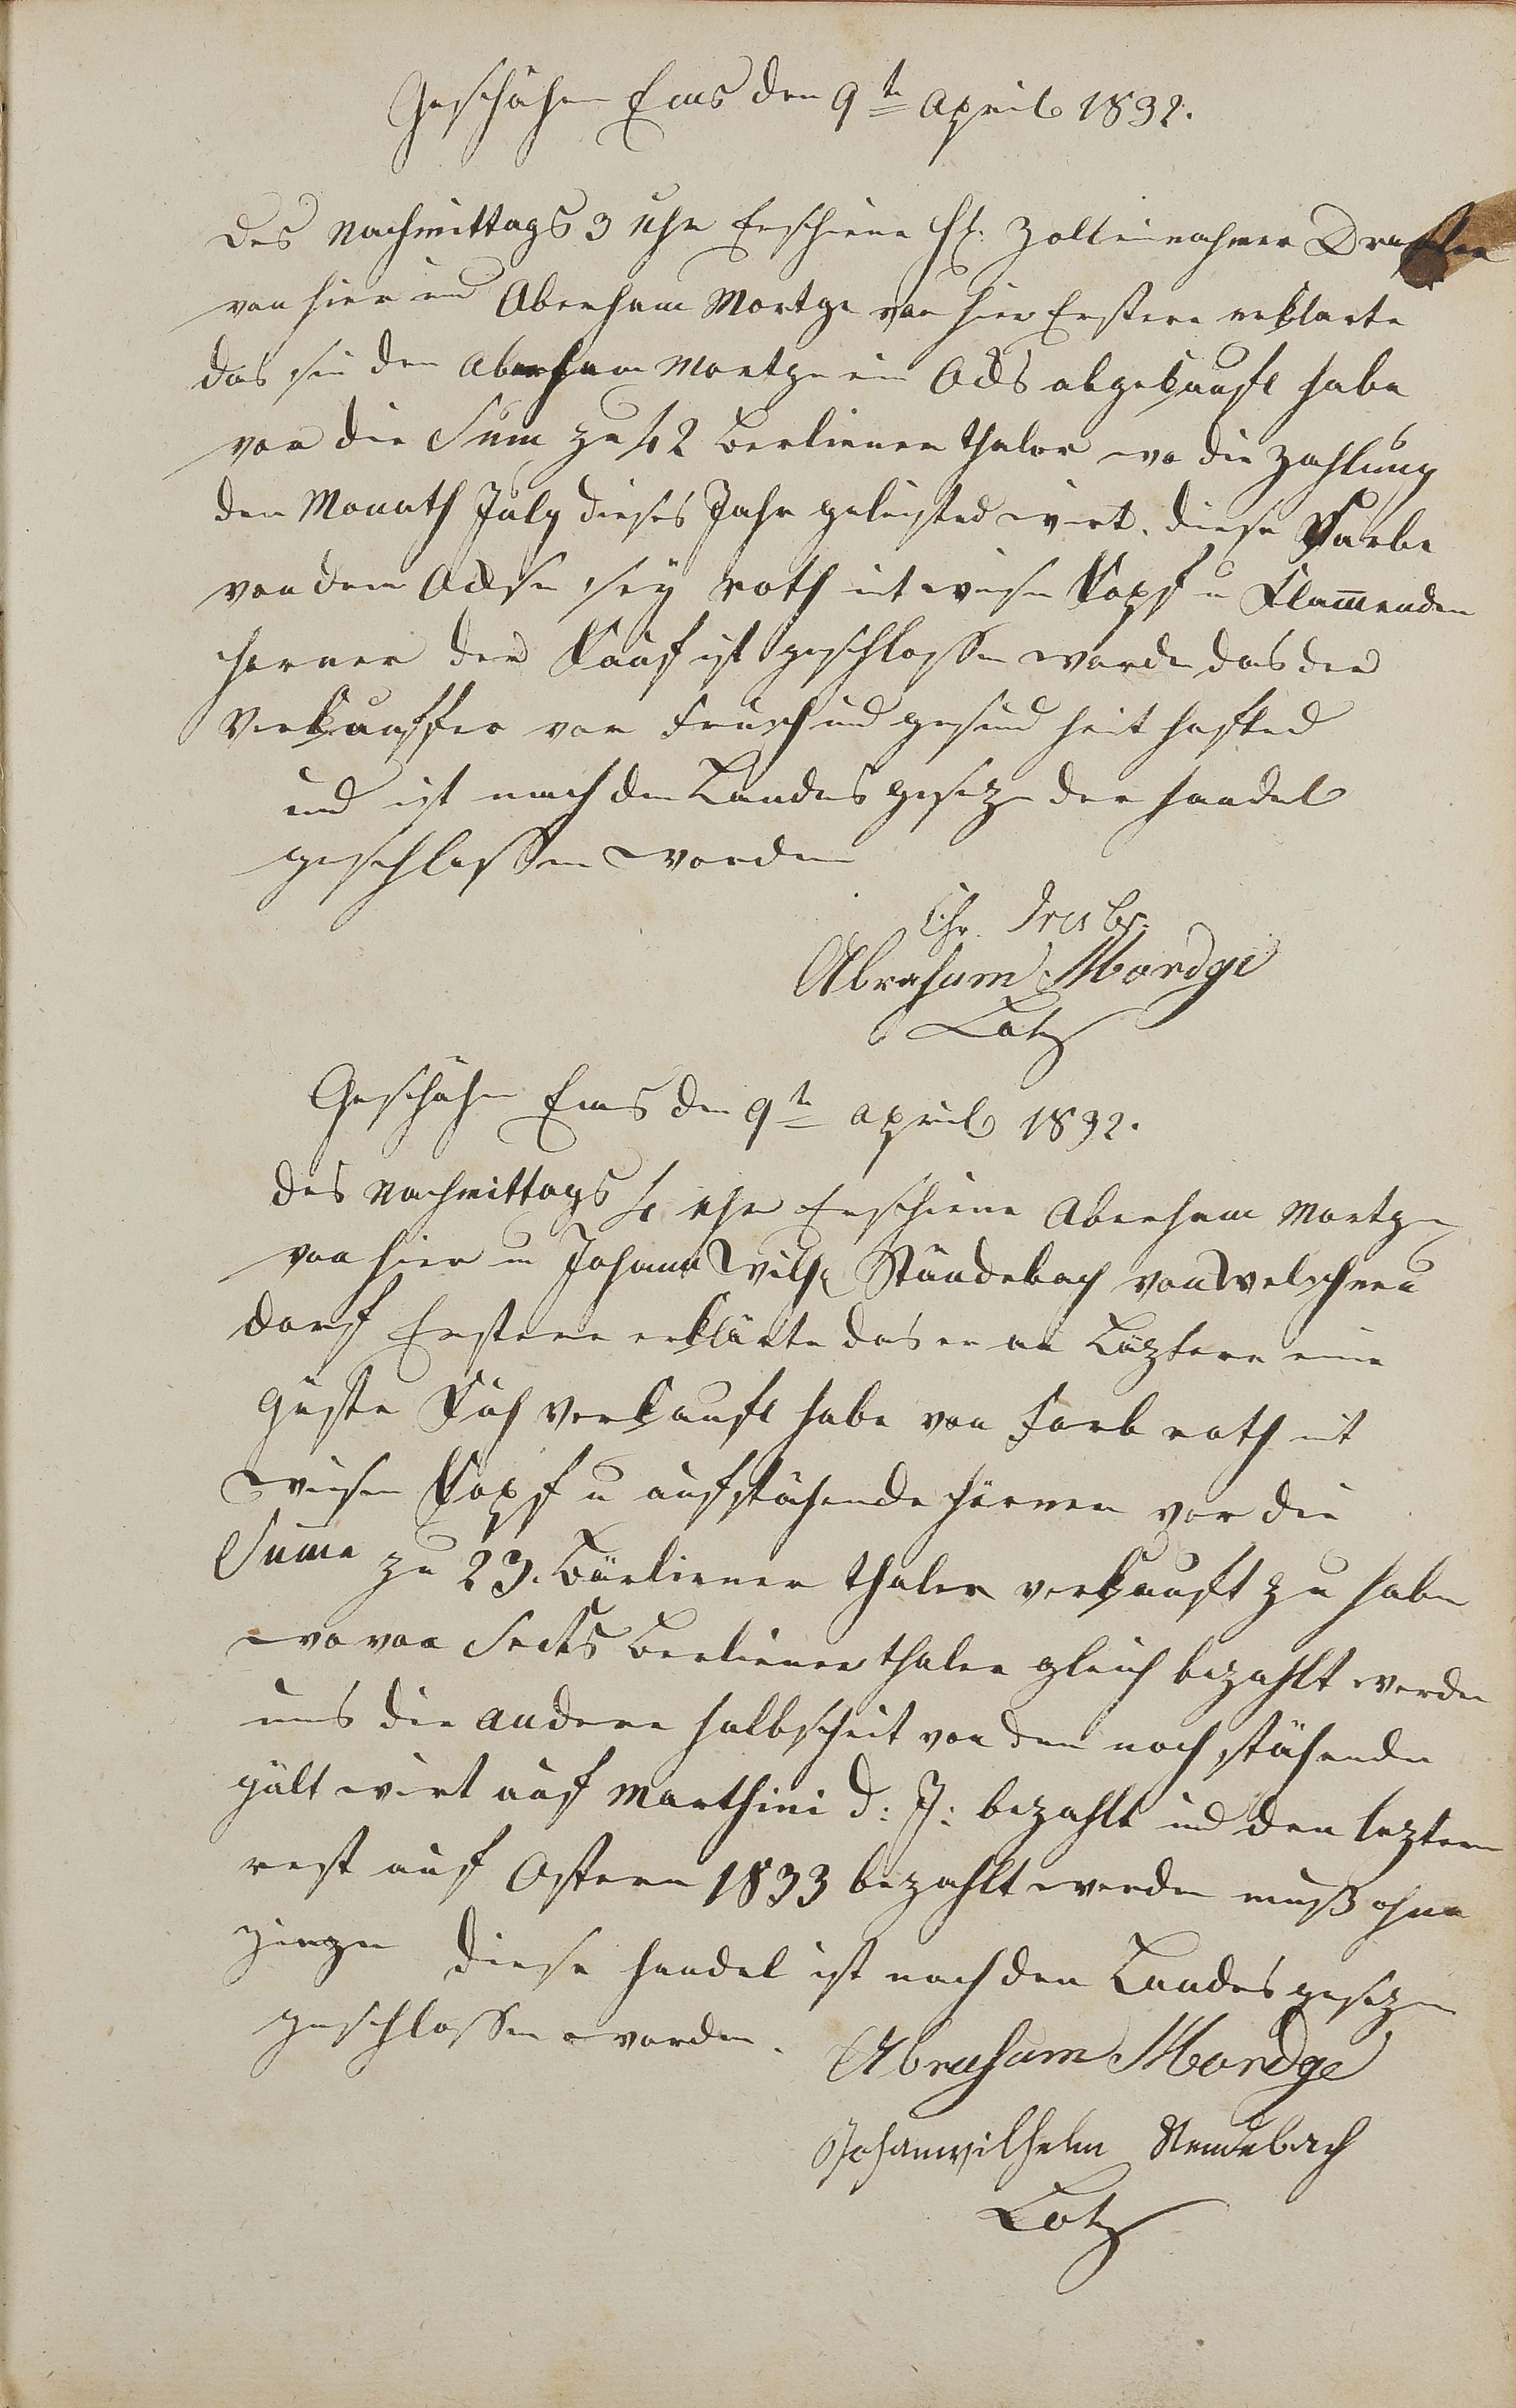 Geschähen Ems den 9te April 1832.
Des Nachmittags 3 Uhr Erschiene H. Zolleinnehmer
von hier und Aberham Mortge von hier Erstere erklarte
das sie den Aberham Mortge ein Ochs abgekauft habe
vor die Sum zu 42 Berliener thaler wo die Zahlung
den Monath July dieses Jahr geleisted wirt. diese Farbe
von dem Ochse sey roth mit weisen Kopf u Klammenden
horner der Kauf ist geschlossen worden das der
Verkauffer vor Frisch und gesund heit hafted
und ist nach den Landes gesezen der handel
geschlossen worden
Chr.
Abraham Mordge
Lotz
Geschähen Ems den 9te April 1832.
des Nachmittags 4 Uhr Erschiene Aberham Mortge
von hier u Johann Wilh. Ständebach von Welschneu
dorf Erstere erklärte das er an Läztern eine
güste Kuh verkauft habe von Farb roth mit
weisen Kopf u aufstähende hörner vor die
Summe zu 23. Bärliener thaler verkauft zu haben
wo von Sechs Berliener thaler gleich bezahlt werden
uns die andere halbscheit von dem noch stähenden
gält wirt auf Marthini d: J: bezahlt und den leztern
rest auf Ostern 1833 bezahlt werden muß ohne
zinzen diese handel ist nach den Landes gesezen
geschlossen worden.
Abraham Mordge
Johanwilhelm Stendebach
Lotz